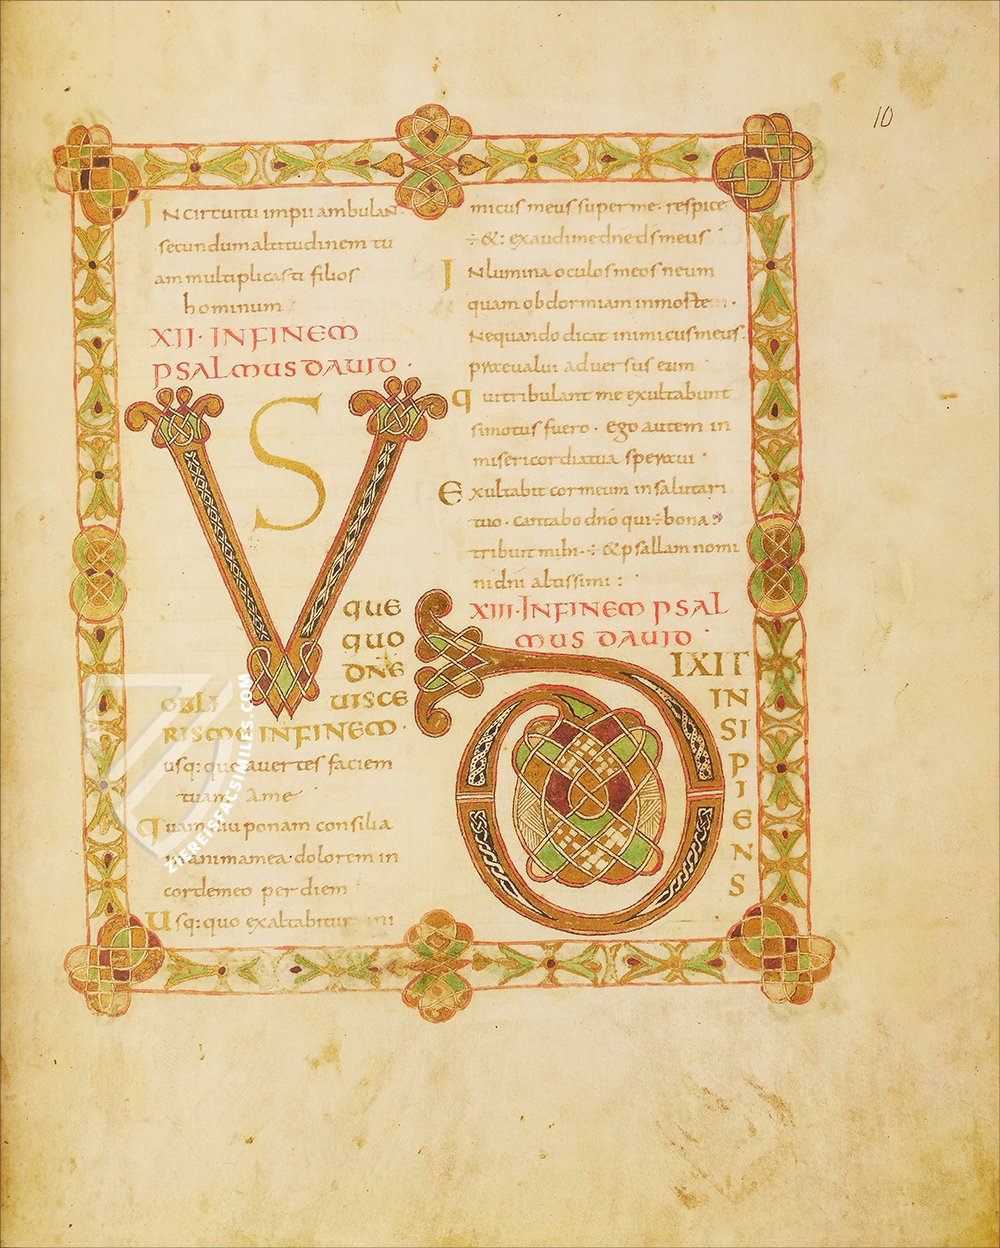 10
IN circuitu impii ambulant·
secundum altitudinem tu
am multiplicasti filios
hominum
XII· IN FINEM
PSALMUS DAUID·
US
QUE
QUO
DNE
OBLI UISCE
RISME IN FINEM·
usq: quo auertes faciem
tuam Ame
Quamdiu ponam consilia
in anima mea· dolorem in
corde meo per diem
Usq: quo exaltabitur ini
micus meus super me· respice
÷&: exaudi me dne ds meus
INlumina oculos meos ne um
quam obdormiam in morte·
Nequando dicat inimicus meus·
praeualui aduersus eum
Qui tribulant me exultabunt
si motus fuero· ego autem in
misericordia tua speraui·
Exultabit cor meum in salutari
tuo· cantabo dno qui ÷ bona
tribuit mihi· ÷ & psallam nomi
ni dni altissimi:
XIII· IN FINEM PSAL
MUS DAUID·
DIXIT
IN
SI
P
I
E
N
S
ZIEREISFACSIMILES.COM